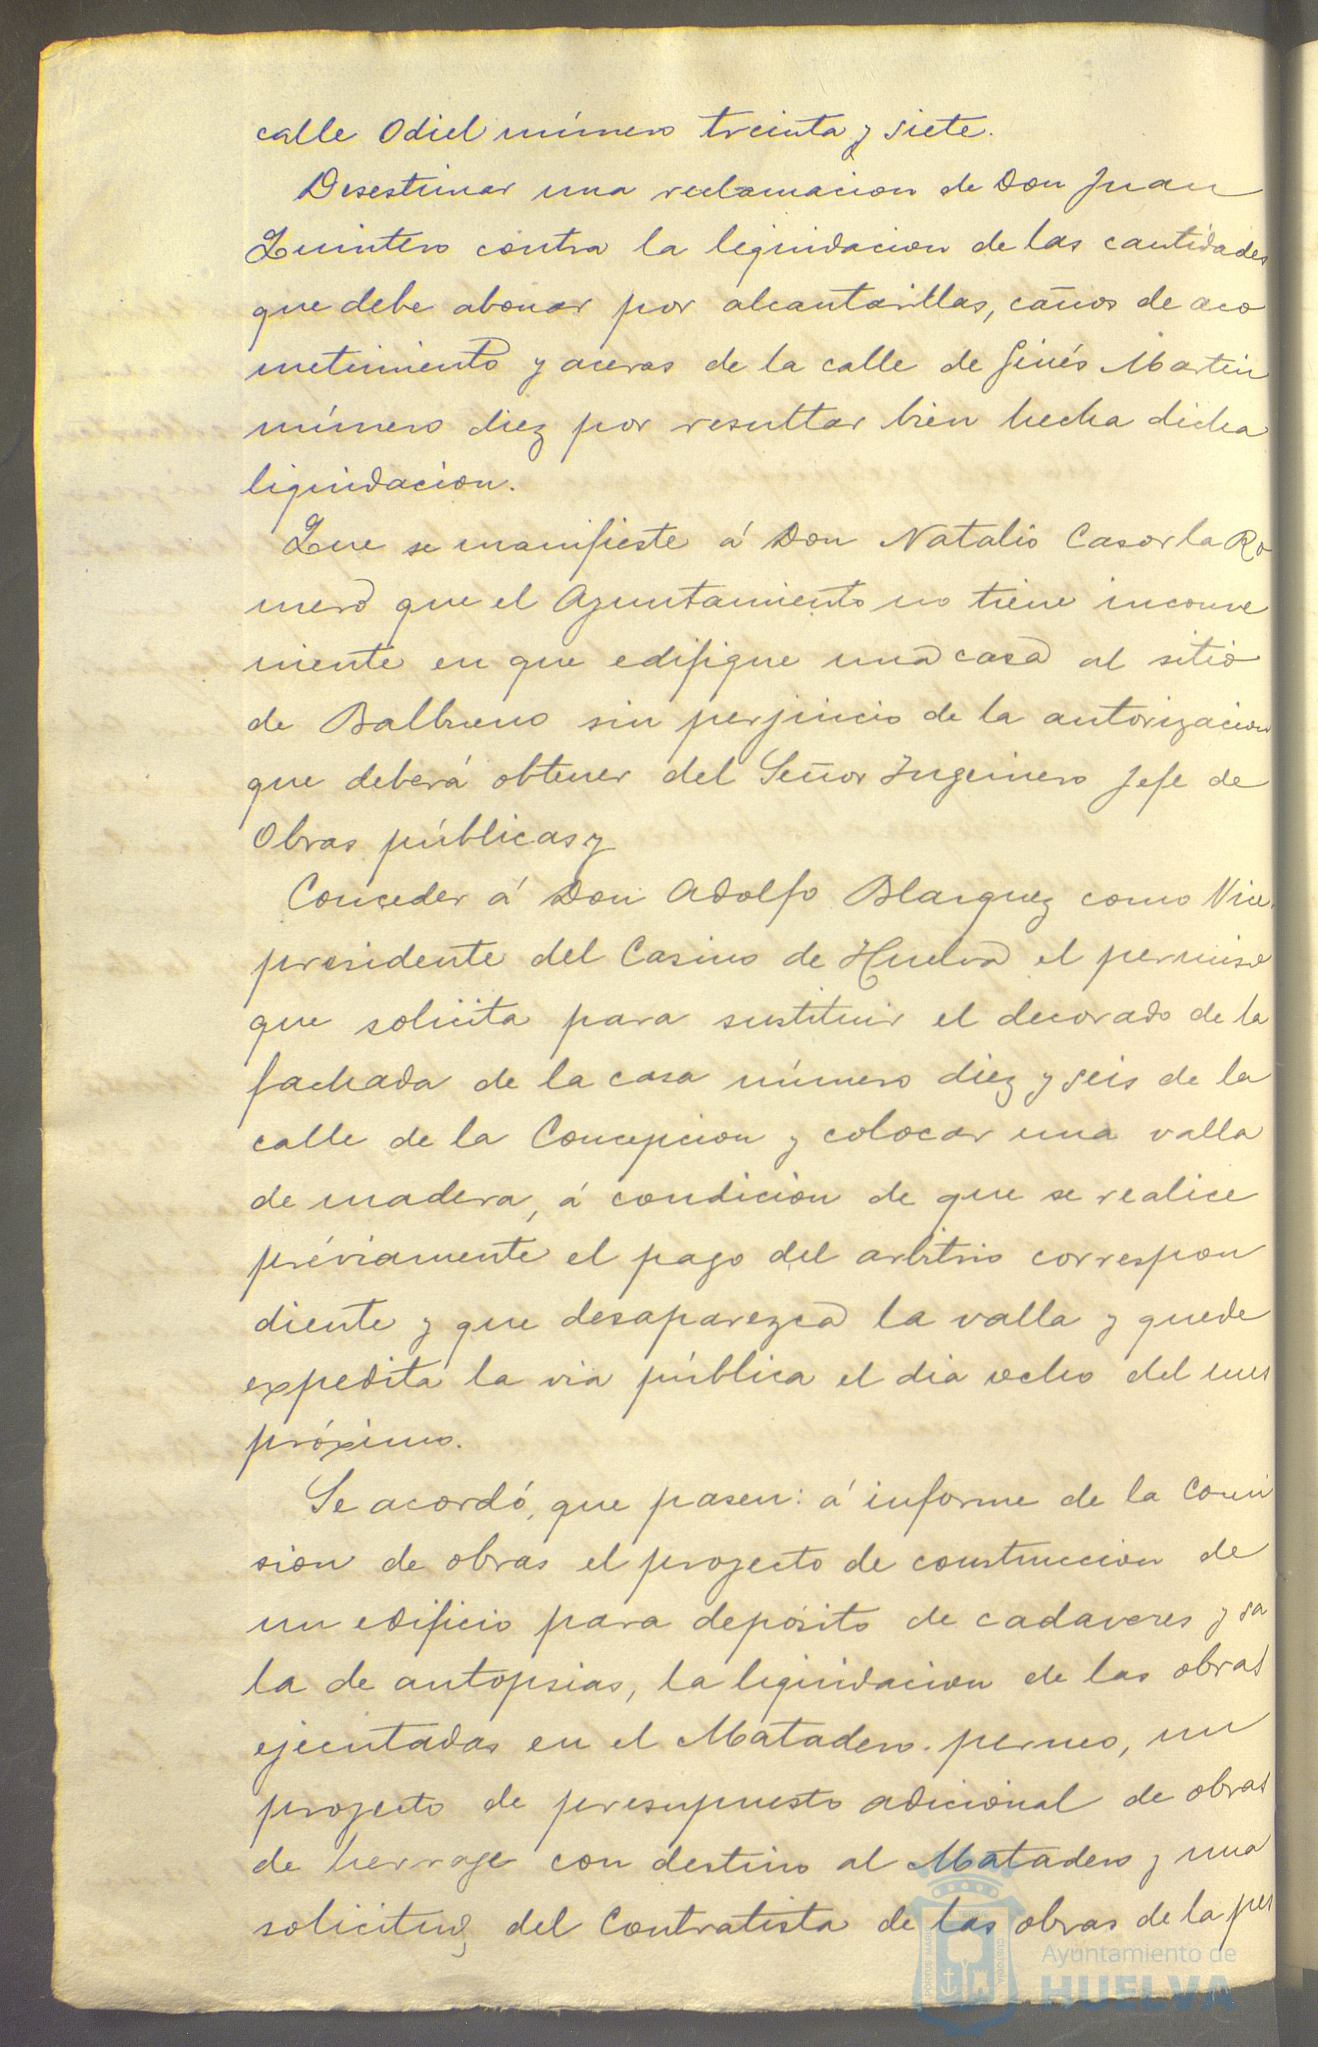 calle Odiel número treinta y siete.
Desestimar una reclamacion de Don Juan
Quintero contra la liquidacion de las cantidades
que debe abonar por alcantarillas, caños de aco
metimiento y aceras de la calle de Ginés Martin
número diez por resultar bien hecha dicha
liquidacion.
Que se manifieste á Don Natalio Casorla Ro
mero que el Ayuntamiento no tiene inconve
niente en que edifique una casa al sitio
de Balbueno sin perjuicio de la autorizacion
que deberá obtener del Señor Ingeniero Jefe de
Obras públicas y
Conceder á Don Adolfo Blazquez como Vice-
presidente del Casino de Huelva el permiso
que solicita para sustituir el decorado de la
fachada de la casa número diez y seis de la
calle de la Concepcion y colocar una valla
de madera, á condicion de que se realice
préviamente el pago del arbitrio correspon
diente y que desaparezca la valla y quede
expedita la via pública el dia ocho del mes
próximo.
Se acordó, que pasen: á informe de la Comi
sion de obras el proyecto de construccion de
un edificio para depósito de cadaveres y sa
la de autopsias, la liquidacion de las obras
ejecutadas en el Matadero perneo, un
proyecto de presupuesto adicional de obras
de herraje con destino al Matadero y una
solicitud del Contratista de las obras de la pes
PORTUS MARIS
CUSTODIA
Ayuntamiento de
HUELVA